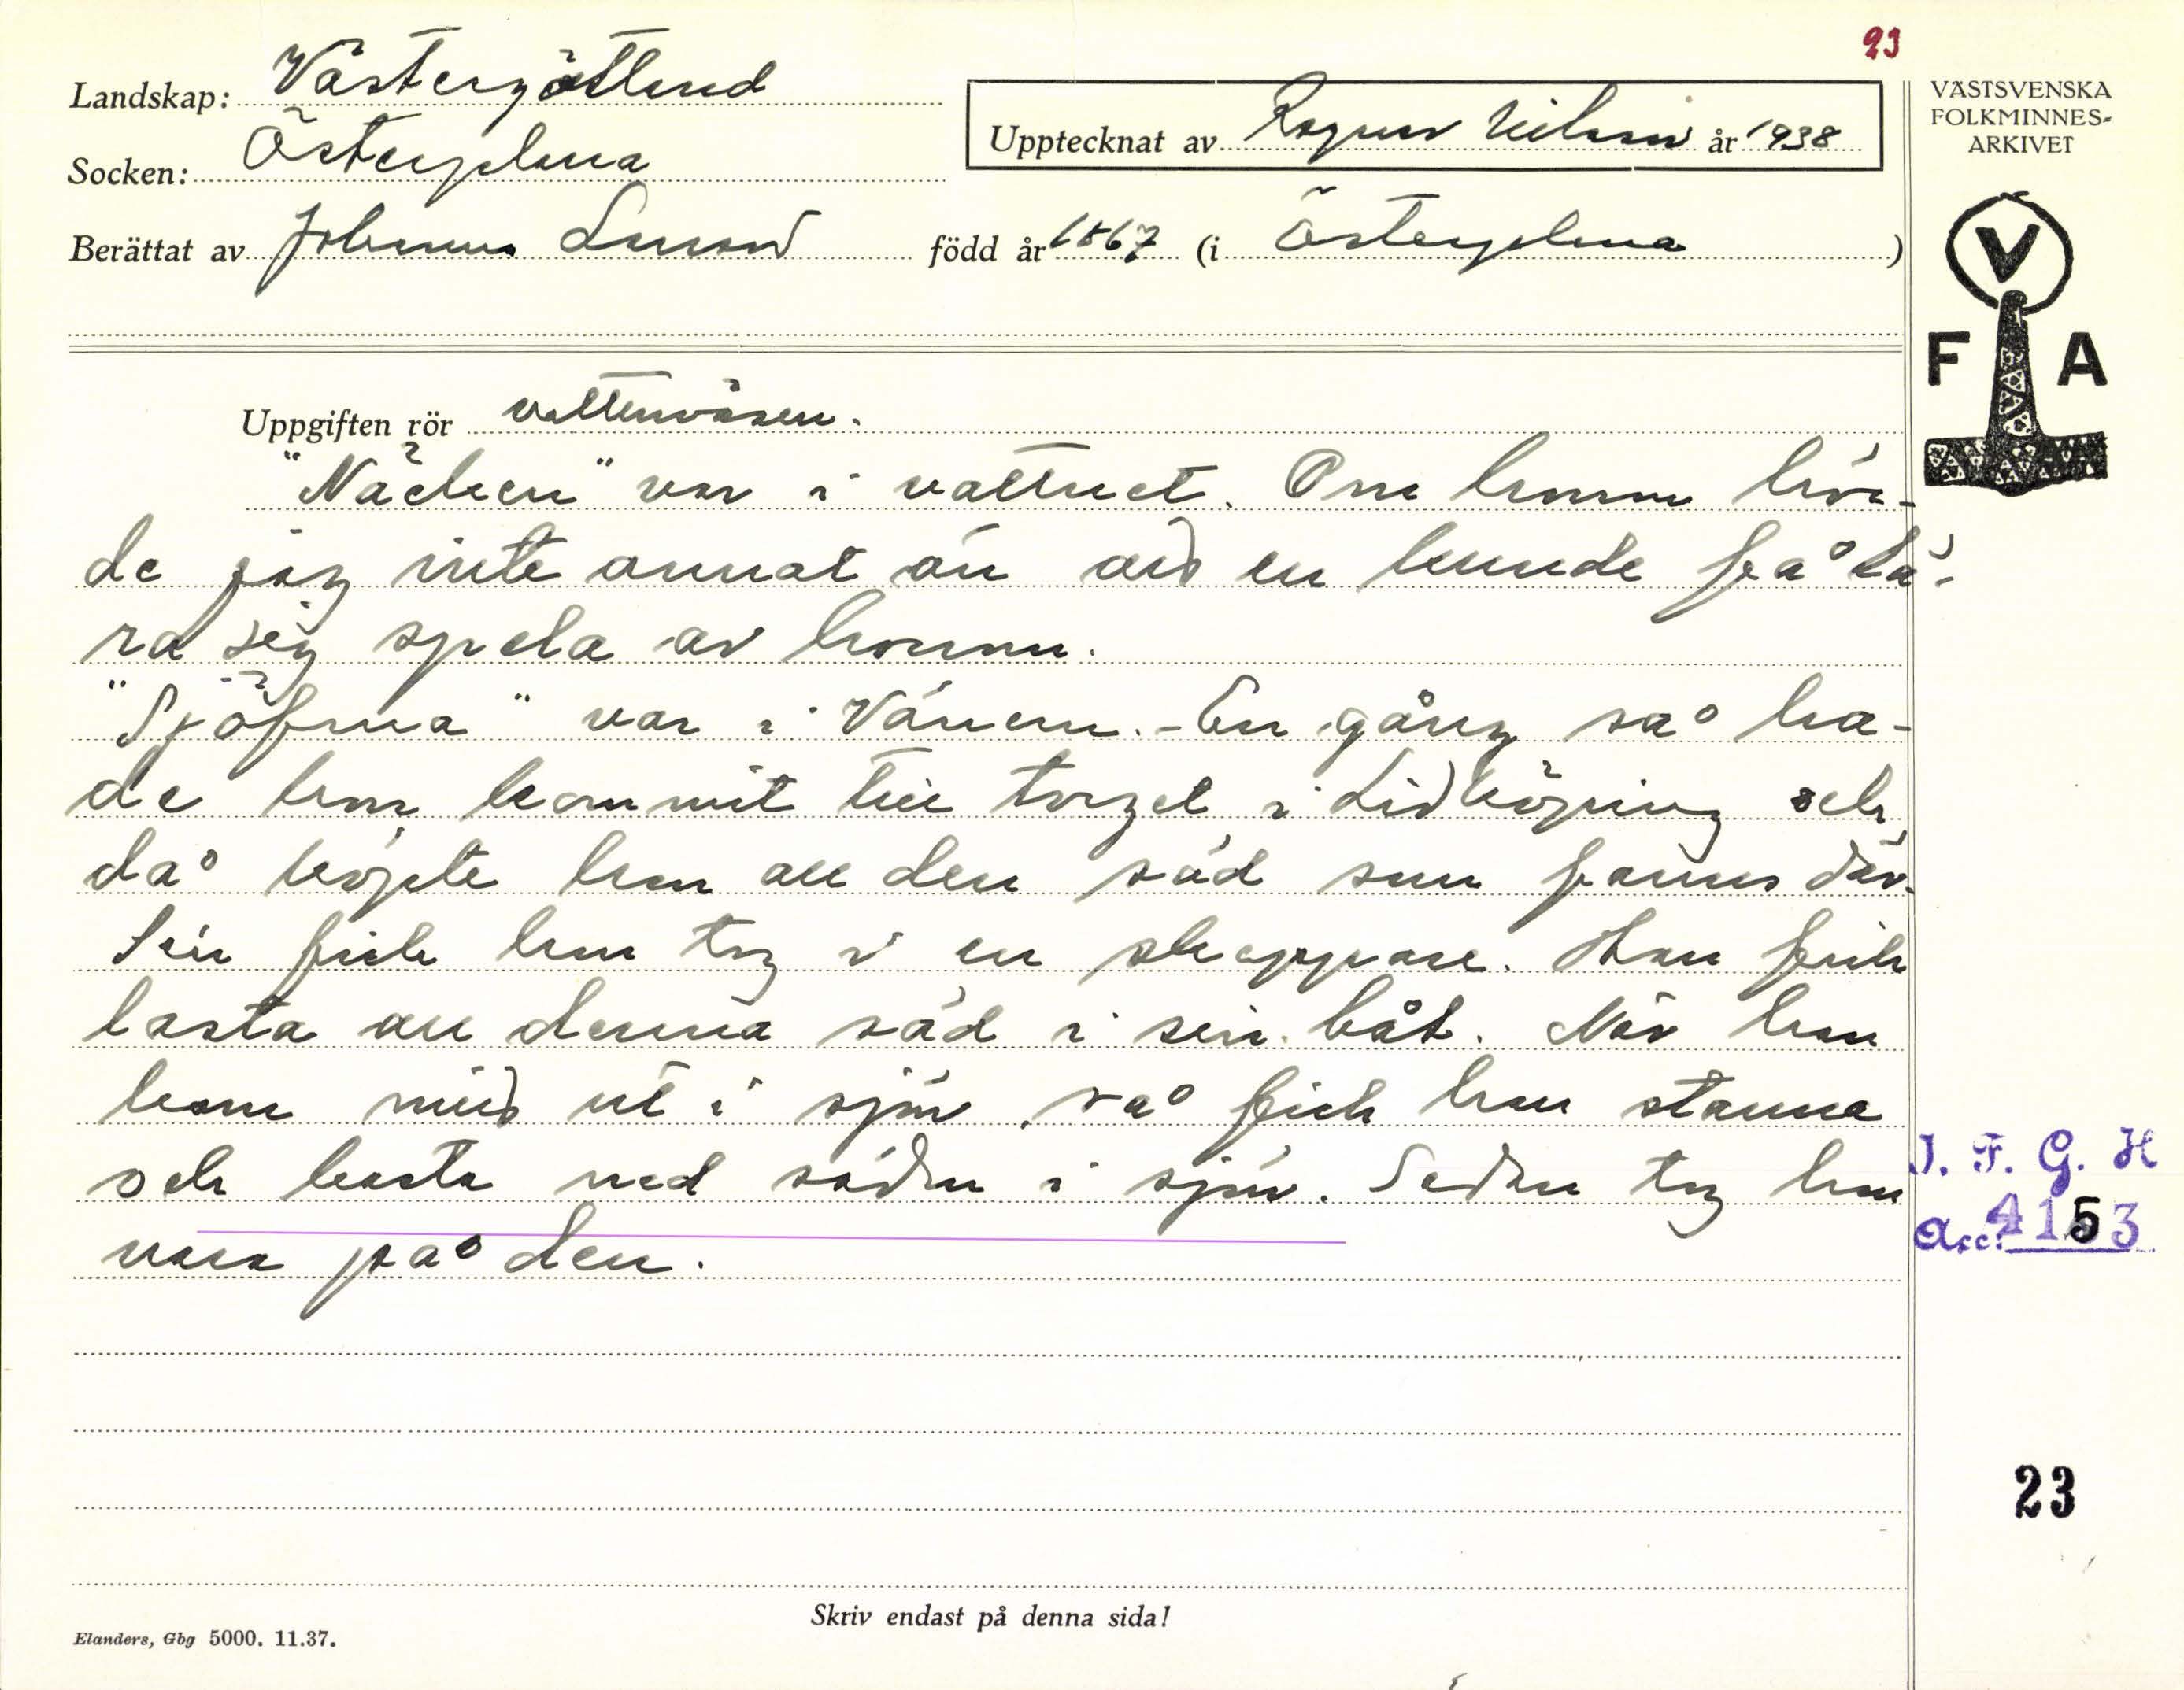 93
Landskap: Västergötland
Socken: Österplana
Upptecknat av Ragnar Nilsson år 1938
Berättat av Johannes Larsson född år 1867 (i Österplana)
VÄSTSVENSKA
FOLKMINNES-
ARKIVET
V
F A
Uppgiften rör vattenväsen.
"Näcken" var i vattnet. Om honom hör-
de jag inte annat än att en kunde få lä-
ra sig spela av honom.
"Sjöfrua" var i Vänern. - En gång så ha-
de hon kommit till torget i Lidköping och
då köpte hon all den säd som fanns där.
Sen fick hon tag i en skeppare. Han fick
lasta all denna säd i sin båt. När han
kom mitt ut i sjön, så fick han stanna
och kasta ned säden i sjön. Sedan tog hon
vara på den.
I. F. G. H
Acc: 4153
23
Skriv endast på denna sida!
Elanders, Gbg 5000. 11.37.